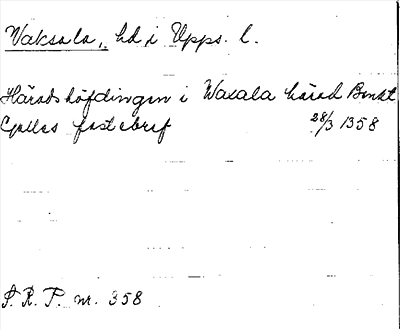 Vaksala, hd i Upps. l.
Häradshöfdingen i Waxala härad Bengt
Gallas fastebref 28/3 1358
S. R. P. nr. 358